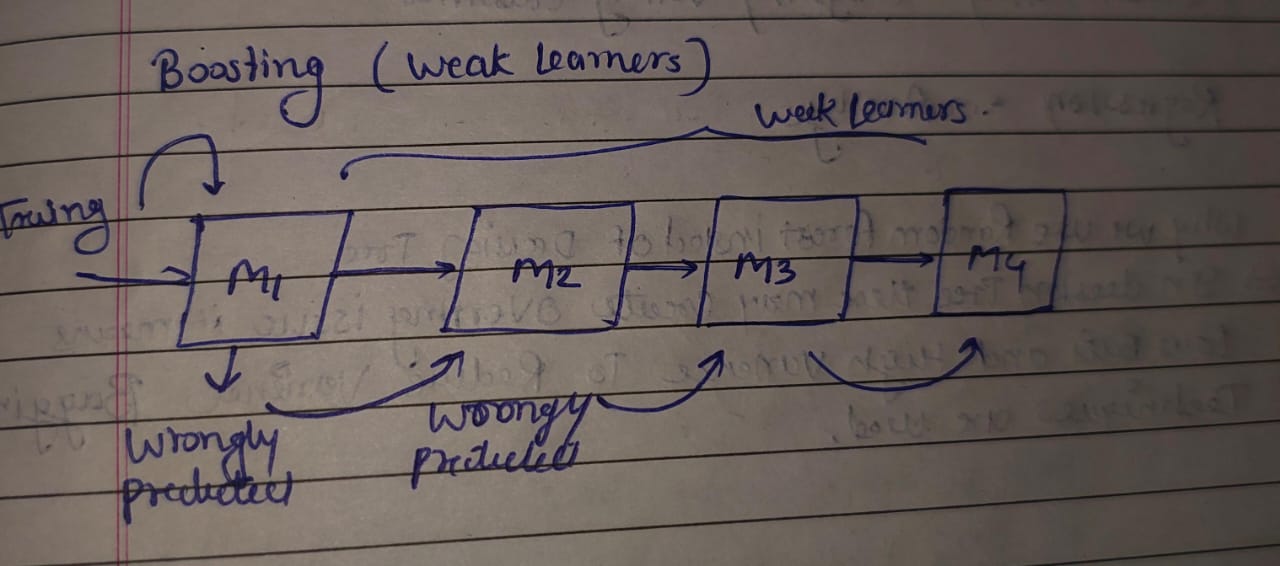 Boosting (weak learners)
week learners.
M1
M2
M3
M4
Wrongly
predicted
Woongly
predicted